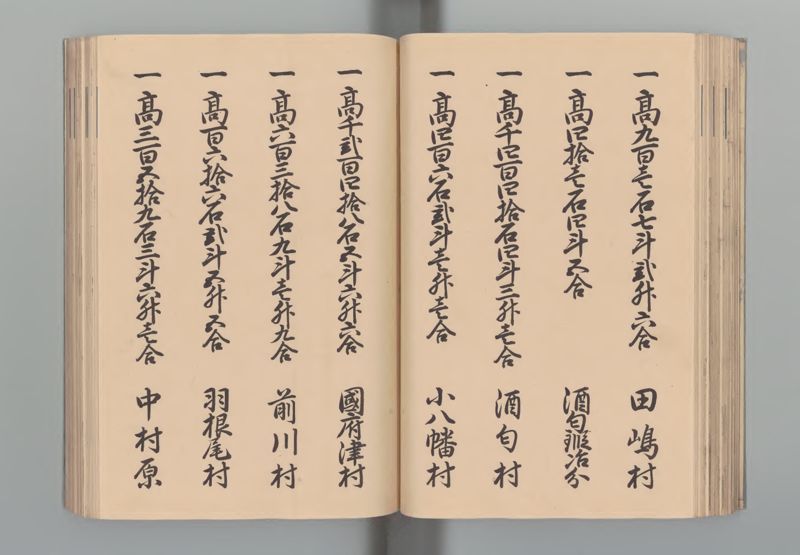 一高九百壱石七斗弐升六合 田嶋村
一高四拾壱石四斗五合 酒匂鍛冶分
一高千四百四拾石四斗三升壱合 酒匂村
一高四百六石弐斗壱升壱合 小八幡村
一高千弐百四拾八石五斗六升六合 國府津村
一高六百三拾八石九斗壱升九合 前川村
一高百六拾六石弐斗五升五合 羽根尾村
一高三百五拾九石三斗六升壱合 中村原